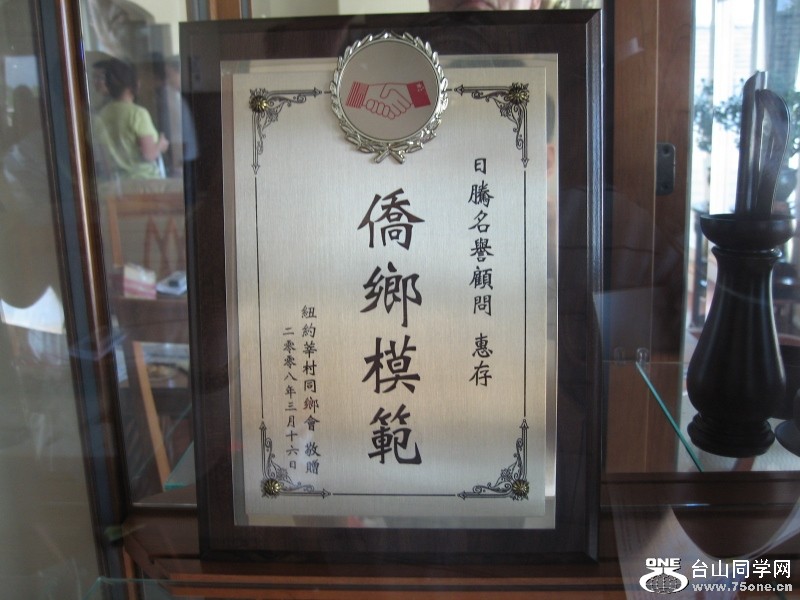 日騰名譽顧問 惠存
僑鄉模範
紐約莘村同鄉會 敬贈
二零零八年三月十六日
ONE
75
台山同学网
www.75one.cn